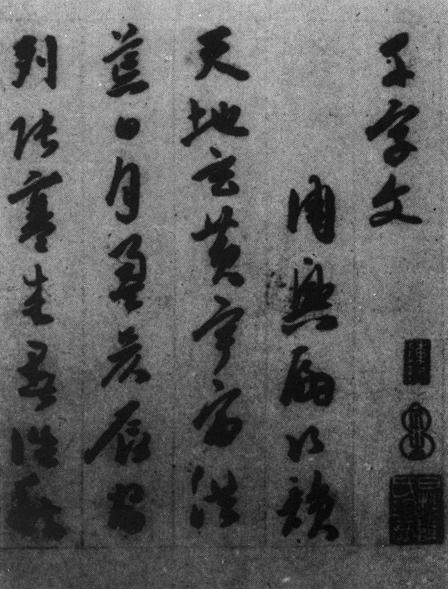 千字文
周興嗣次韻
天地玄黃宇宙洪
荒日月盈昃辰宿
列張寒來暑往秋